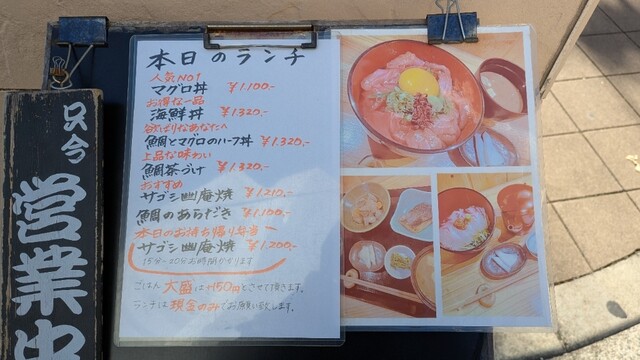 本日のランチ
人気NO1
マグロ丼 ¥1.100.-
お得な一品
海鮮丼 ¥1.320.-
欲ばりなあなたへ
鯛とマグロのハーフ丼 ¥1.320.-
上品な味わい
鯛茶づけ ¥1.320.-
おすすめ
サゴシ幽庵焼 ¥1.210.-
鯛のあらだき ¥1.100.-
本日のお持ち帰り弁当
サゴシ幽庵焼 ¥1.200.-
15分〜20分お時間かかります
ごはん大盛は+150円とさせて頂きます。
ランチは現金のみでお願い致します。
只今
営業中